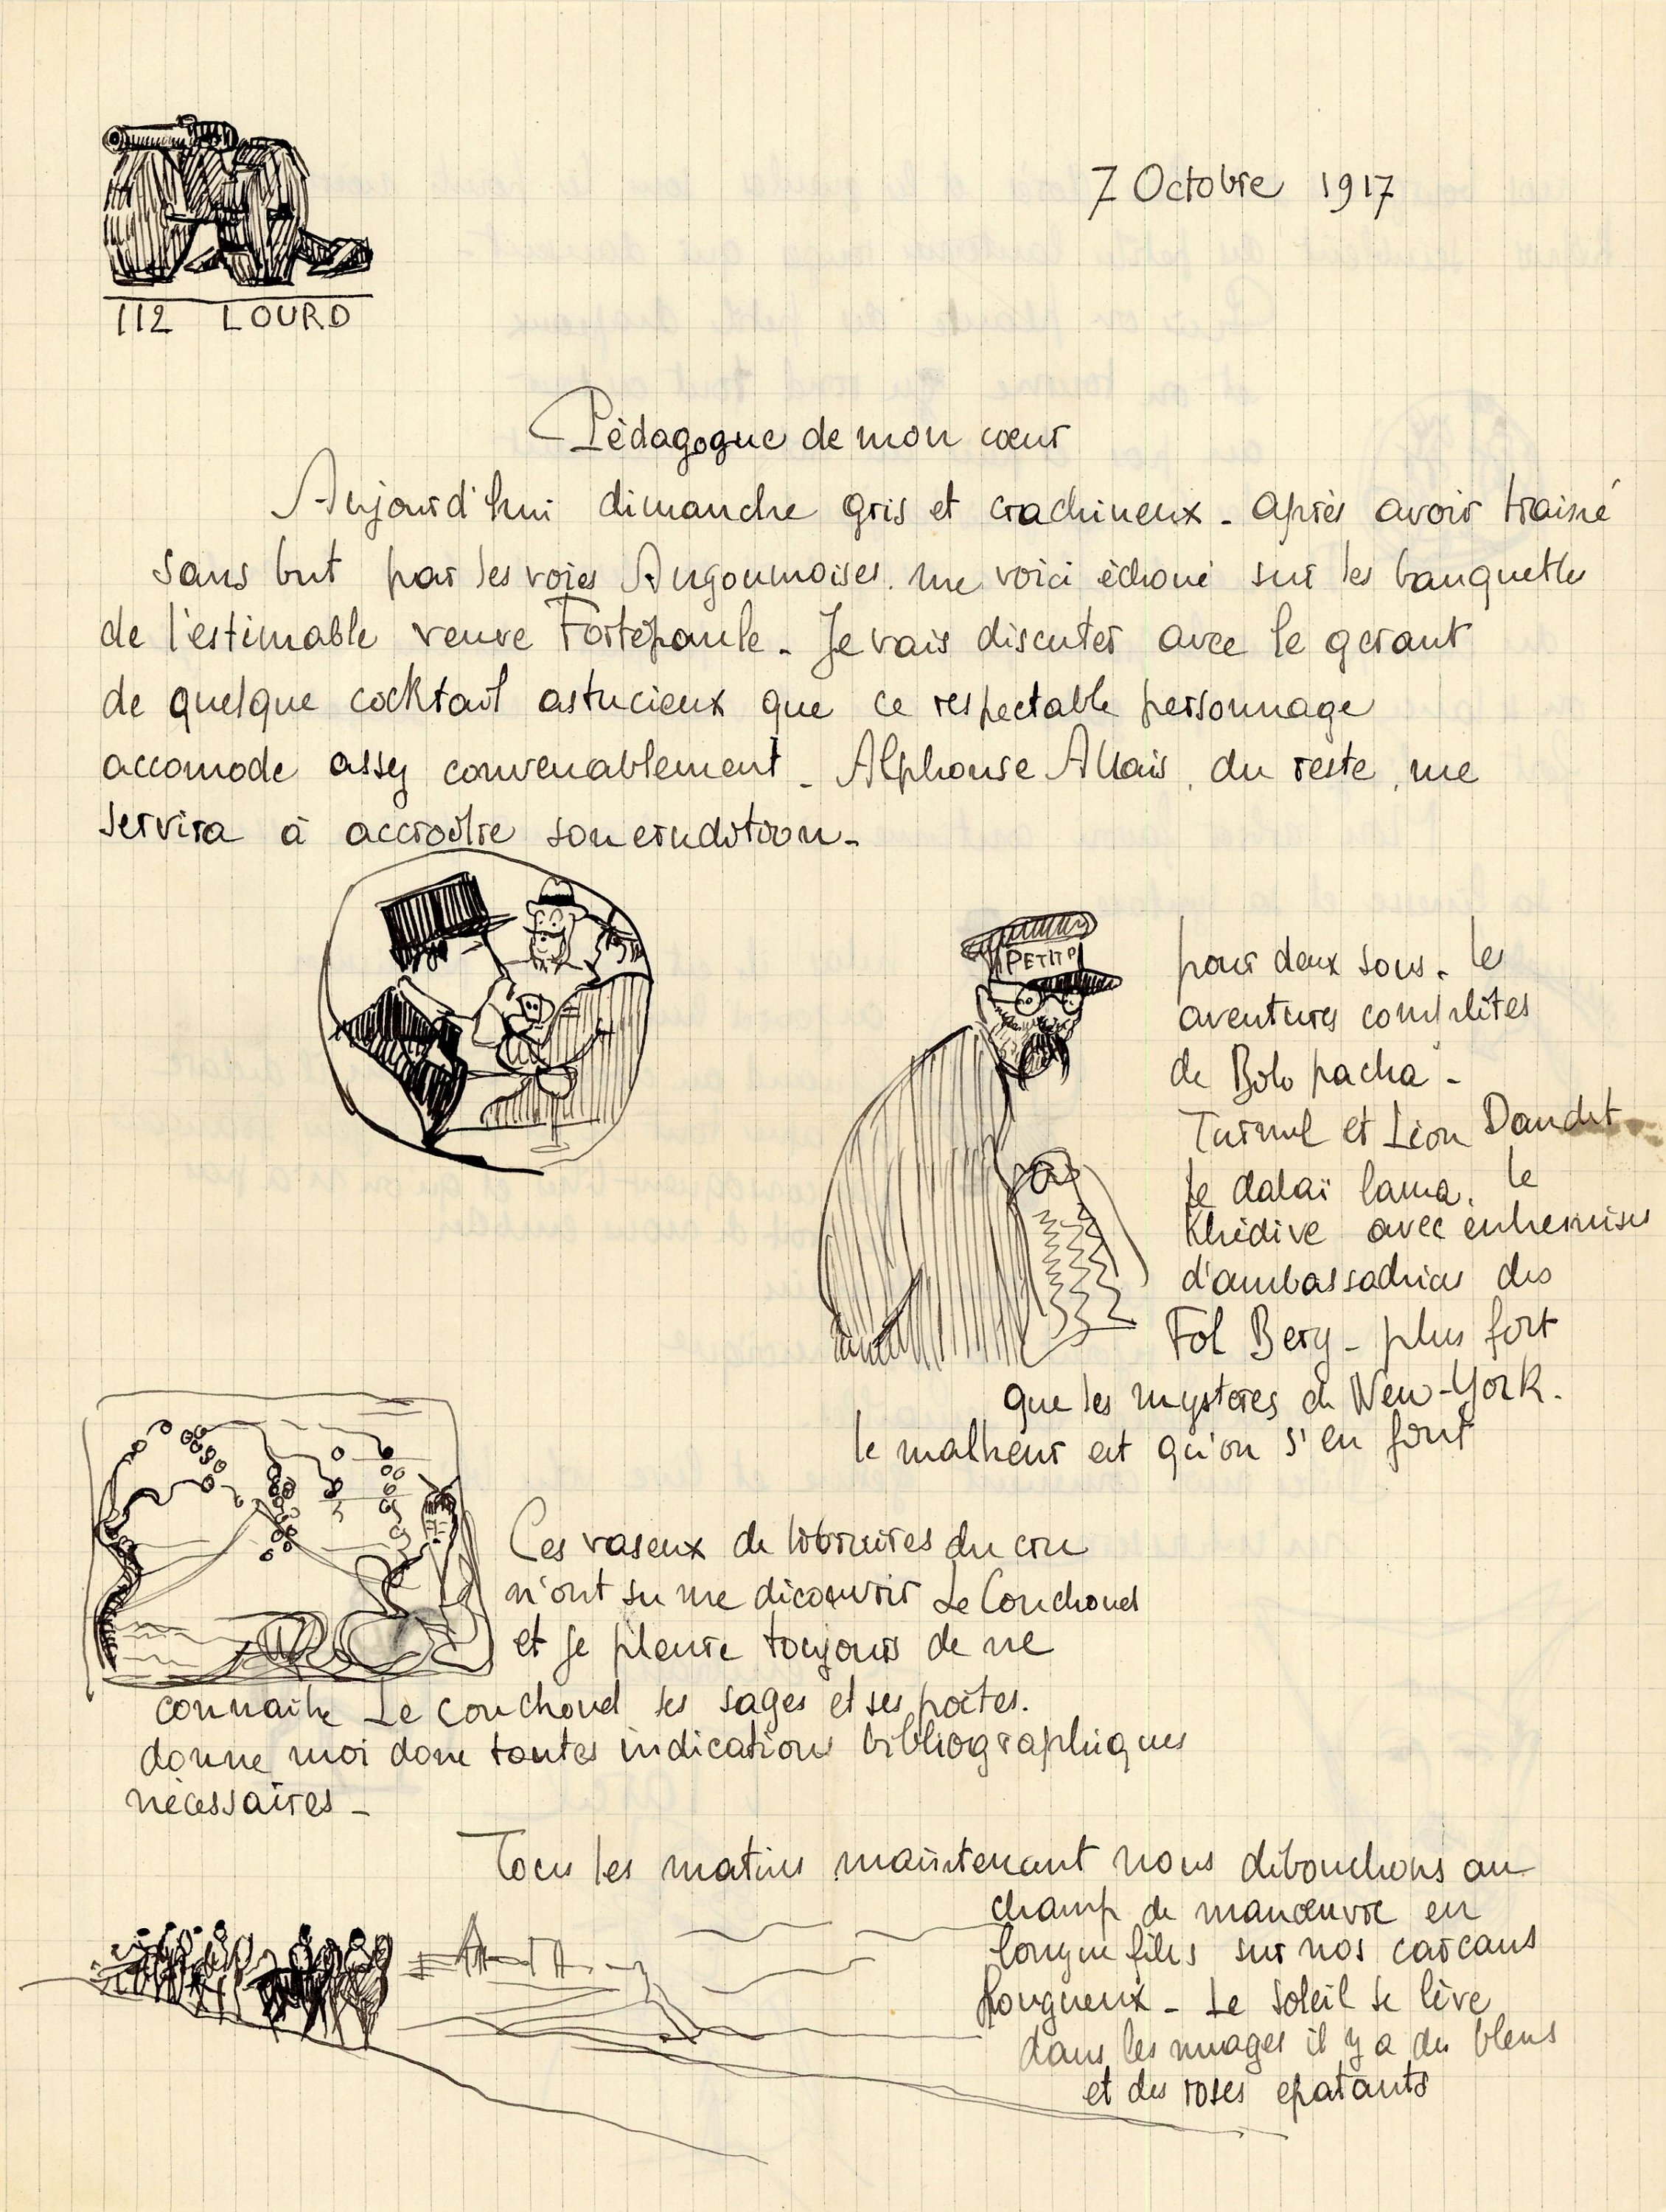 7 Octobre 1917
112 LOURD
Pédagogue de mon cœur
Aujourd'hui dimanche gris et crachineux - après avoir trainé
sans but par les voies Angoumoises. me voici échoué sur les banquettes
de l'estimable veuve Fortépaule - Je vais discuter avec le gerant
de quelque cocktail astucieux que ce respectable personnage
accomode assez convenablement - Alphonse Allais, du reste, me
servira à accroître son erudition -
PETIT P
pour deux sous - les
aventures complètes
de Bolo pacha -
Turmel et Léon Daudet
le dalaï lama. le
Khédive avec entremises
d'ambassadrices des
Fol Berg - plus fort
que les mystères de New-York.
le malheur est qu'on s'en fout
Ces vaseux de libraires du cru
n'ont su me découvrir Le Couchoud
et je pleure toujours de ne
connaitre Le Couchoud ses sages et ses poètes.
donne moi donc toutes indications bibliographiques
nécessaires -
Tous les matins maintenant nous débouchons au
champ de manœuvre en
longue files sur nos carcans
fougueux - Le soleil se lève
dans les nuages il y a des bleus
et des roses epatants